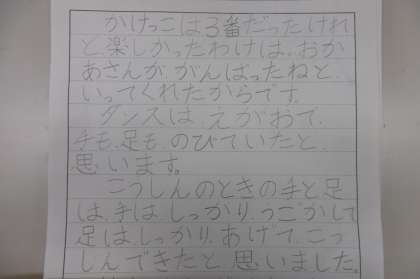 かけっこは3番だったけれ
ど、楽しかったわけは、おか
あさんが、がんばったねと、
いってくれたからです。
ダンスは、えがおで、
手も、足も、のびていたと、
思います。
こうしんのときの手と足
は、手は、しっかり、うごかして
足は、しっかり、あげて、こう
しんできたと、思いました。